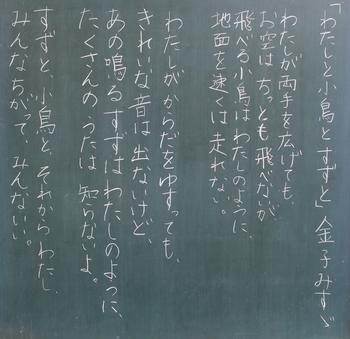 「わたしと小鳥とすずと」金子みすゞ
わたしが両手を広げても、
お空はちっとも飛べないが
飛べる小鳥はわたしのように、
地面を速くは走れない。
わたしがからだをゆすっても、
きれいな音は出ないけど、
あの鳴るすずはわたしのように、
たくさんのうたは知らないよ。
すずと、小鳥と、それからわたし、
みんなちがって、みんないい。